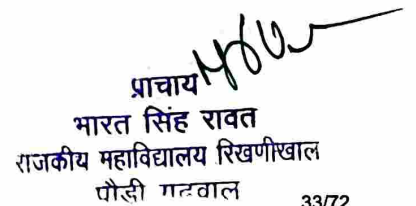 प्राचार्य
भारत सिंह रावत
राजकीय महाविद्यालय रिखणीखाल
पौडी गढवाल
33/72